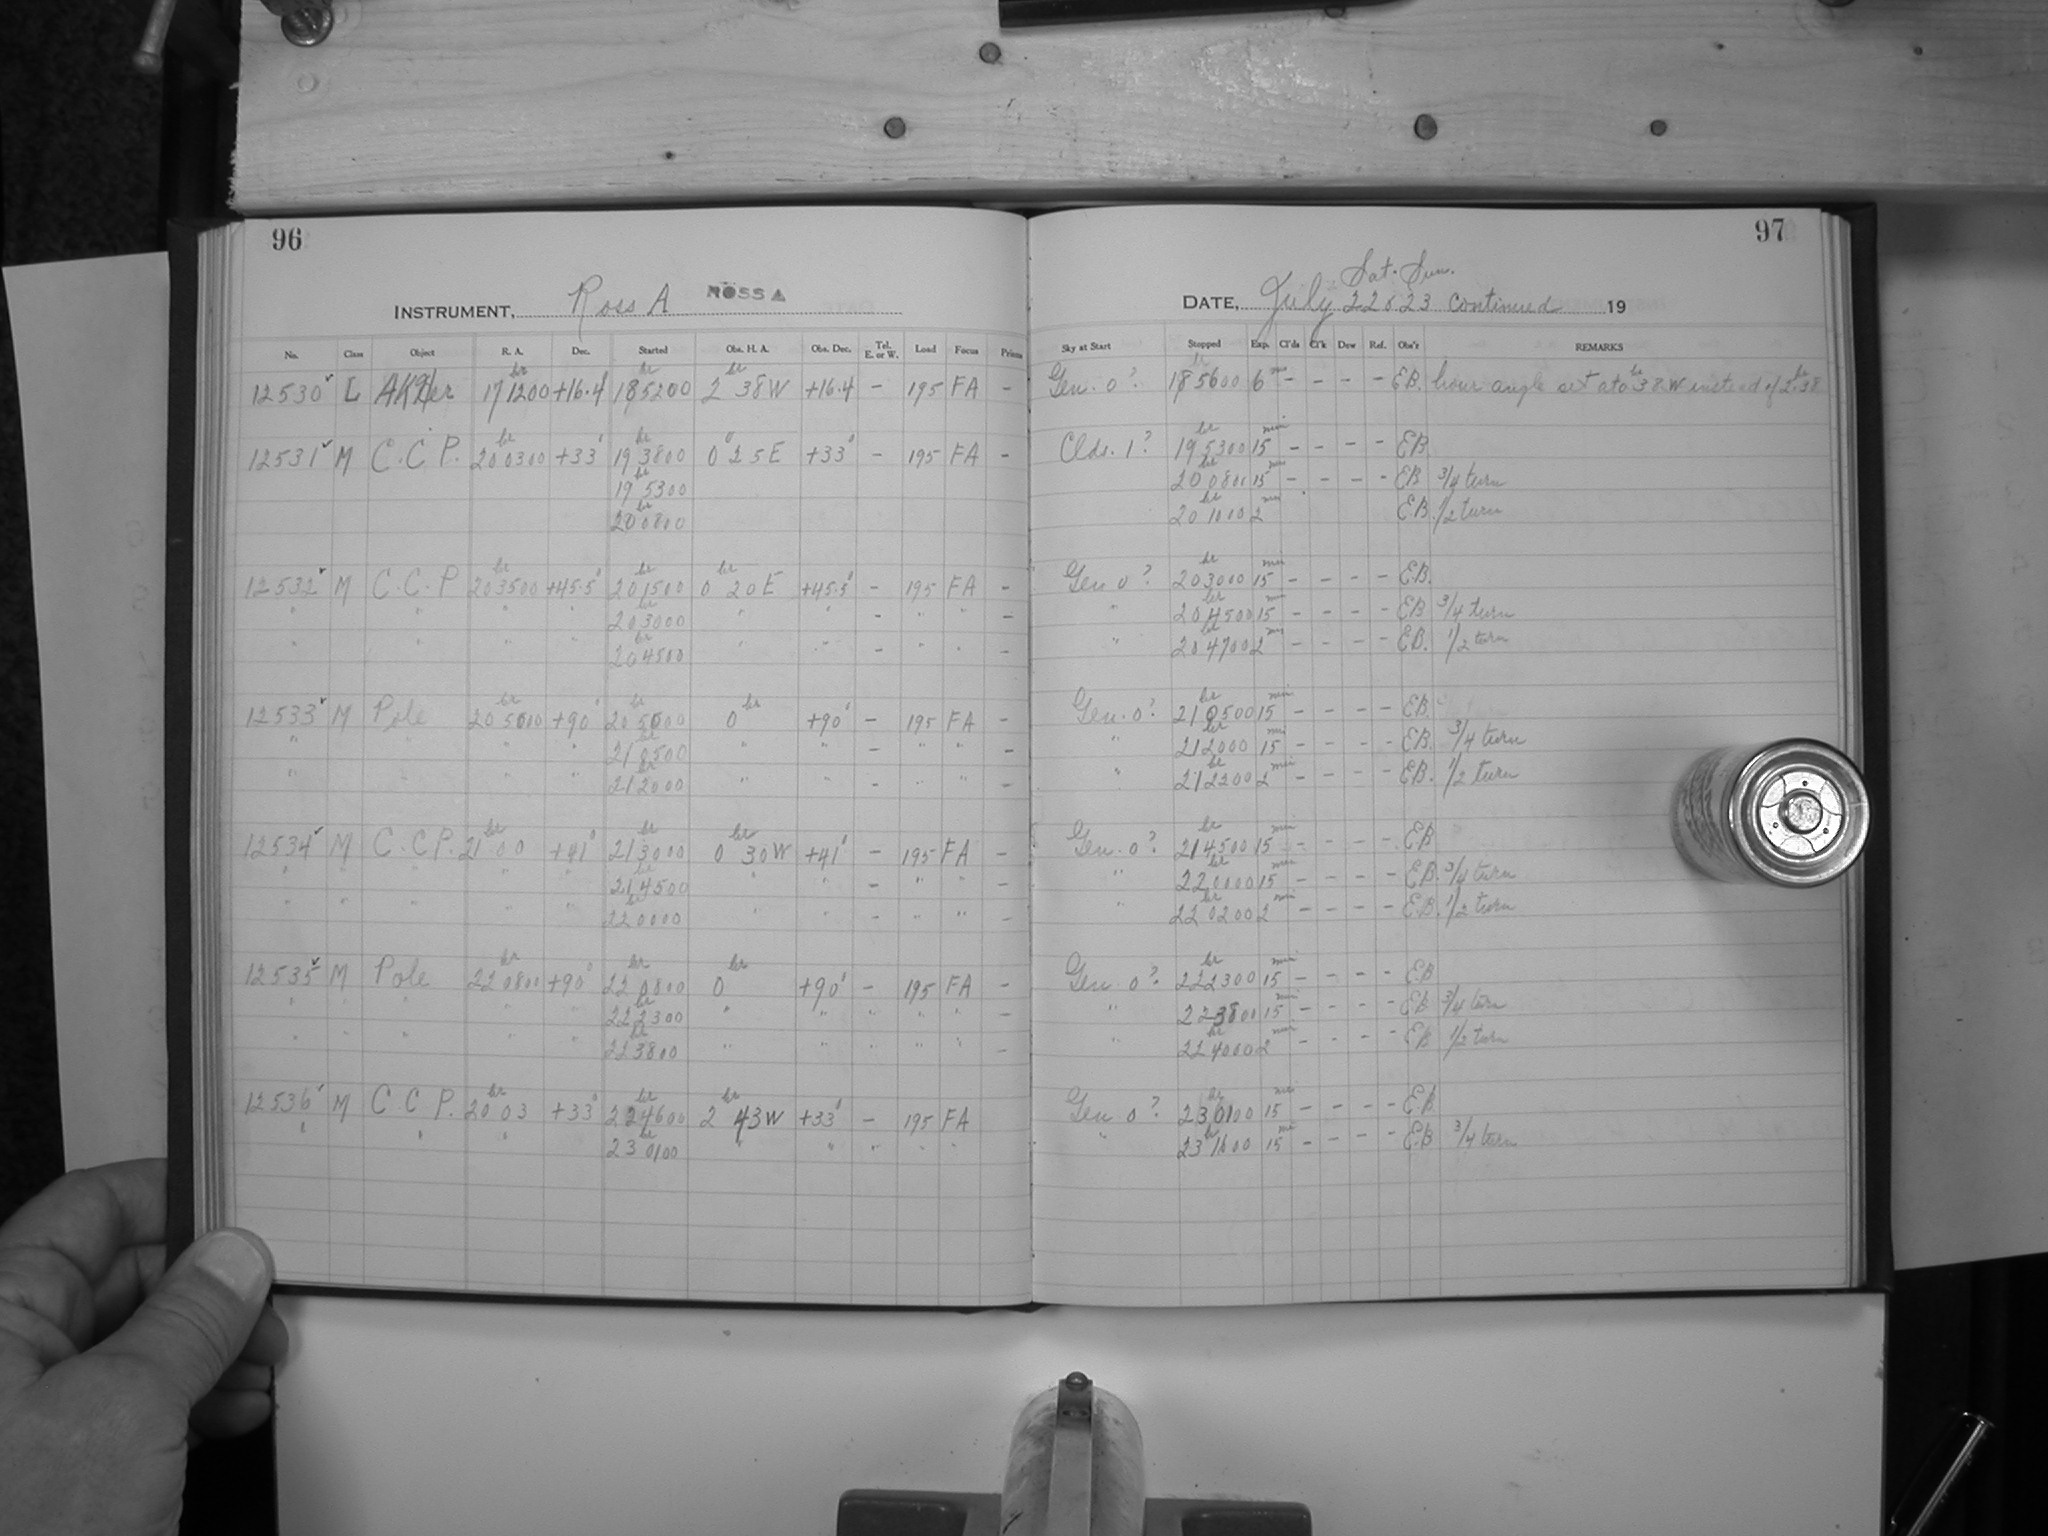 96
INSTRUMENT, Ross A ROSS A
No. Class Object R. A. Dec. Started Obs. H. A. Obs. Dec. Tel. E. or W. Load Focus Prism
12530 L AK Her 17 hr 1200 +16.4 18 hr 5200 2 hr 38 W +16.4 - 195 FA -
12531 M C.C.P. 20 hr 0300 +33° 19 hr 3800 0° 25 E +33° - 195 FA -
19 hr 5300
20 hr 0800
12532 M C.C.P 20 hr 3500 +45.5° 20 hr 1500 0 hr 20 E +45.5° - 195 FA -
" " " " 20 hr 3000 " " - " " -
" " " " 20 hr 4500 " " - " " -
12533 M Pole 20 hr 5000 +90° 20 hr 5000 0 hr +90° - 195 FA -
" " " " 21 hr 0500 " " - " " -
" " " " 21 hr 2000 " " - " " -
12534 M C.C.P. 21 hr 00 +41° 21 hr 3000 0 hr 30 W +41° - 195 FA -
" " " " " 21 hr 4500 " " - " " -
" " " " " 22 hr 0000 " " - " " -
12535 M Pole 22 hr 0800 +90° 22 hr 0800 0 hr +90° - 195 FA -
" " " " 22 hr 2300 " " " " " -
" " " " 22 hr 3800 " " " " " -
12536 M C C P. 20 hr 03 +33° 22 hr 4600 2 hr 43 W +33° - 195 FA
" " " 23 hr 0100 " " " " "
97
Sat. Sun.
DATE, July 22 & 23 continued 19
Sky at Start Stopped Exp. Cl'ds Cl'k Dew Ref. Obs'r REMARKS
Gen. 0? 18 hr 5600 6 m - - - - EB. hour angle set at 0 hr 38 W instead of 2 hr 38
Clds. 1? 19 hr 5300 15 min - - - - EB
20 hr 0800 15 m - - - - EB 3/4 turn
20 hr 1000 2 min EB. 1/2 turn
Gen 0? 20 hr 3000 15 min - - - - EB.
" 20 hr 4500 15 min - - - - EB 3/4 turn
" 20 hr 4700 2 m - - - - EB. 1/2 turn
Gen. 0? 21 hr 0500 15 min - - - - EB.
" 21 hr 2000 15 mi - - - - EB. 3/4 turn
" 21 hr 2200 2 min - - - - EB. 1/2 turn
Gen. 0? 21 hr 4500 15 min - - - - EB
" 22 hr 0000 15 min - - - - EB. 3/4 turn
" 22 hr 0200 2 min - - - - EB. 1/2 turn
Gen 0? 22 hr 2300 15 min - - - - EB
" 22 3800 15 min - - - - EB 3/4 turn
" 22 hr 4000 2 min - - - - EB 1/2 turn
Gen 0? 23 hr 0100 15 min - - - - EB
" 23 hr 1600 15 mi - - - - EB 3/4 turn